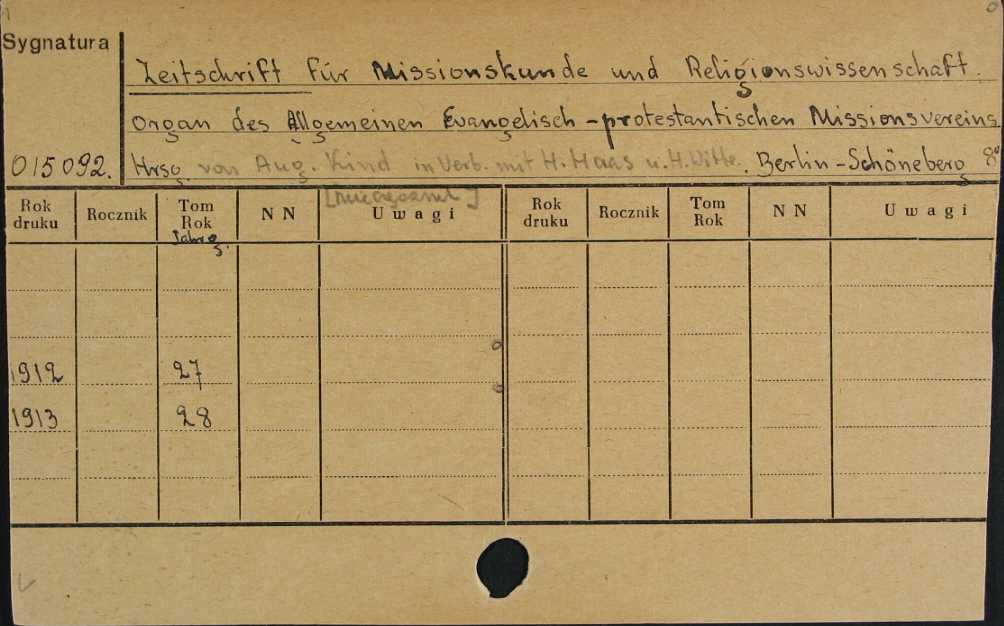 Sygnatura
Zeitschrift für Missionskunde und Religionswissenschaft.
Organ des Allgemeinen Evangelisch-protestantischen Missionsvereins
015092. Hrsg. von Aug. Kind in Verb. mit H. Haas u. H. Witte. Berlin-Schöneberg 8°
Rok druku Rocznik Tom Rok NN Uwagi Rok druku Rocznik Tom Rok NN Uwagi
Jahrg.
1912 27
1913 28